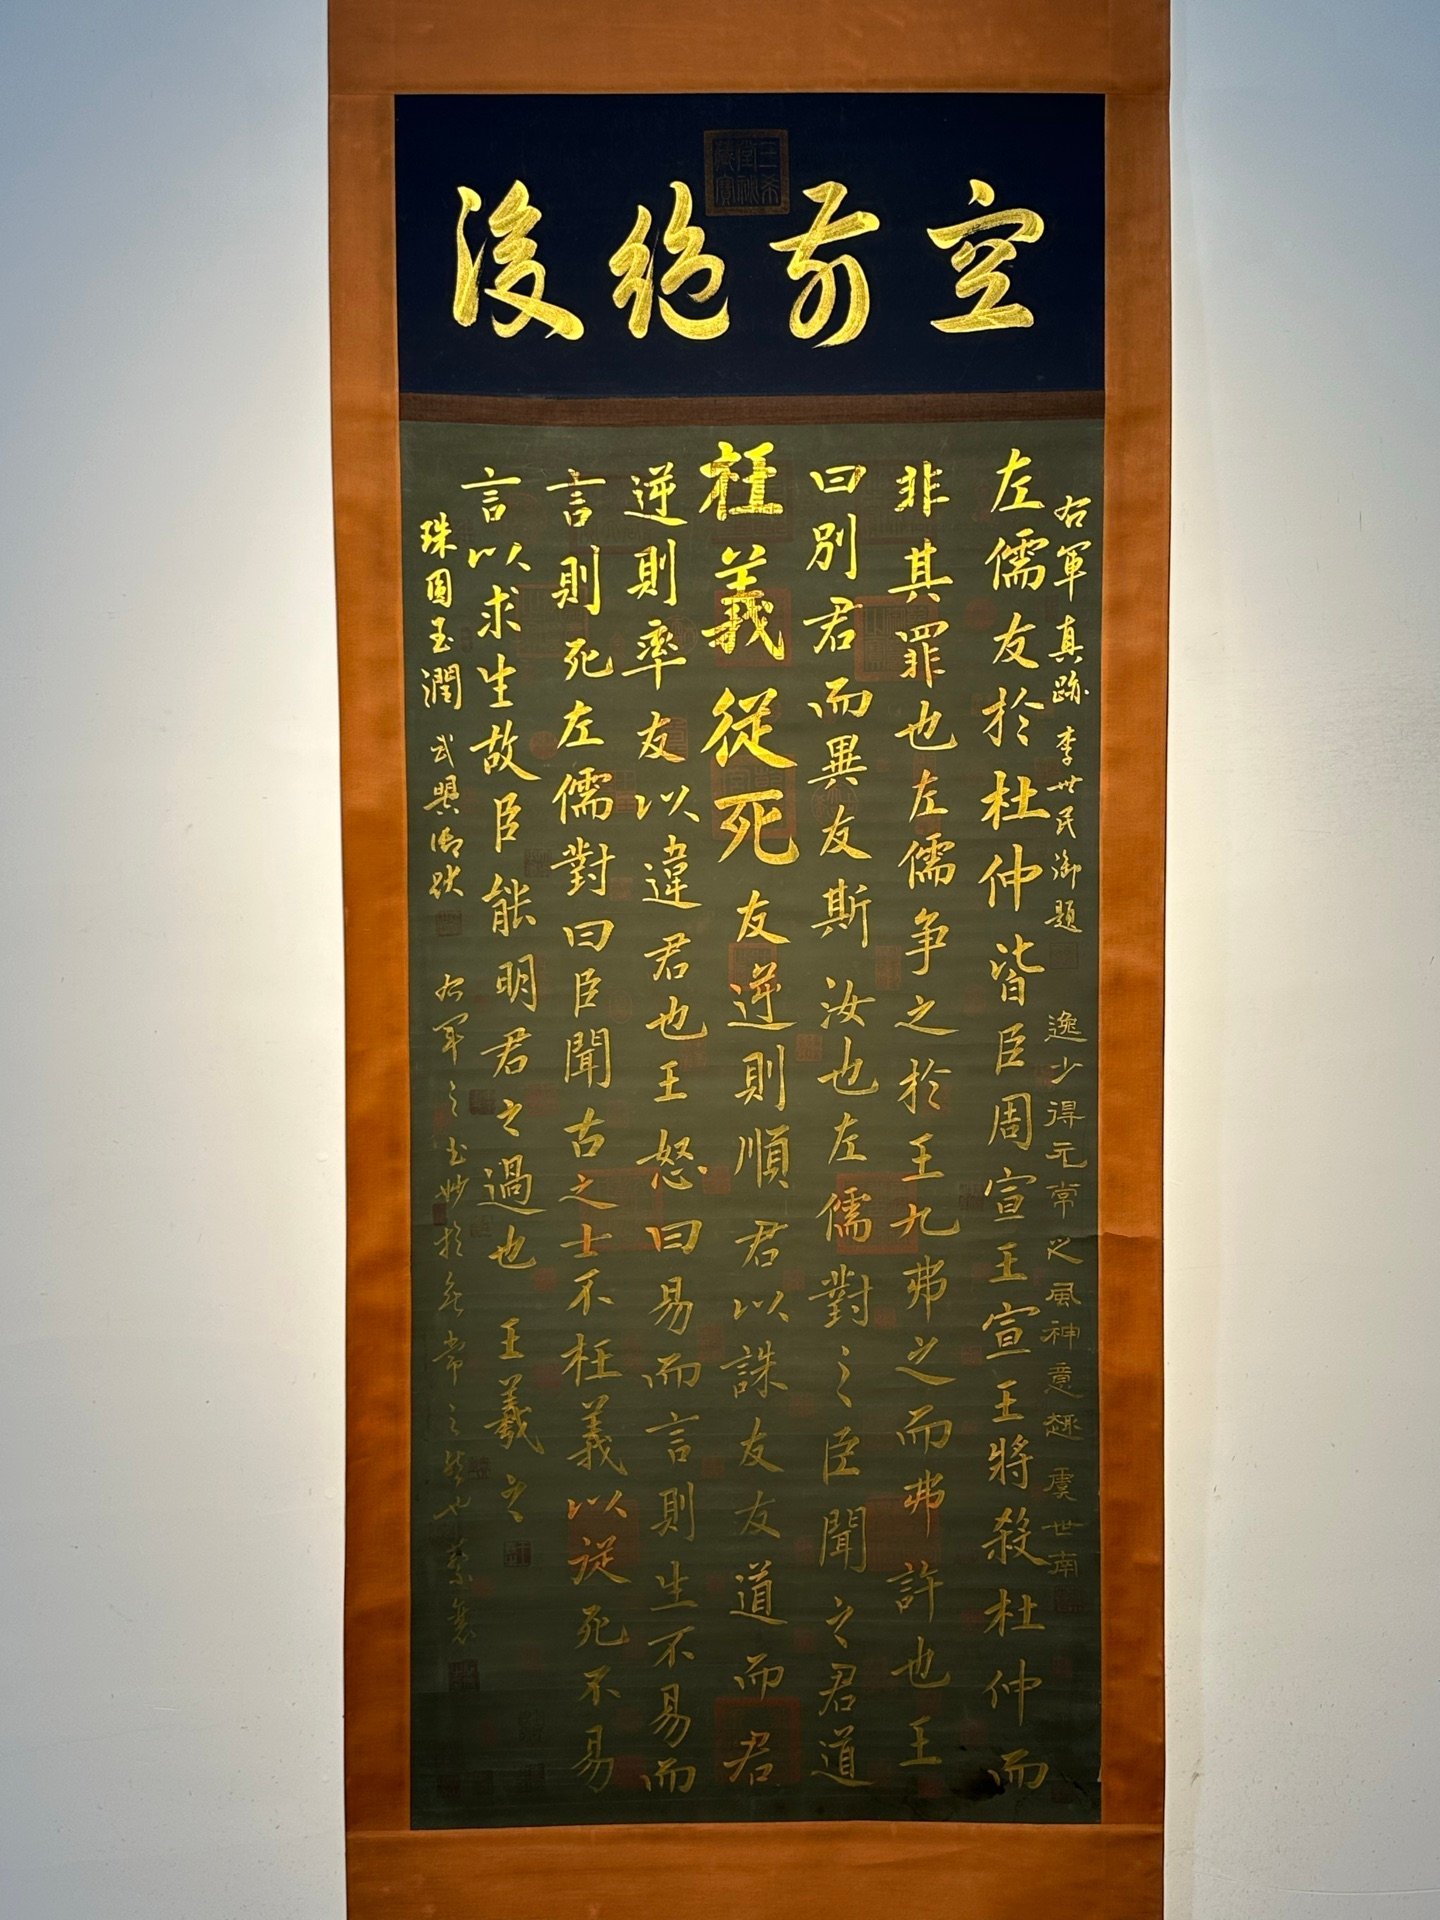 空前絶後
右軍真跡 李世民御題
逸少得元常之風神意趣 虞世南
左儒友於杜仲皆臣周宣王宣王將殺杜仲而
非其罪也左儒争之於王九弗之而弗許也王
曰別君而異友斯汝也左儒對之臣聞之君道
友逆則順君以誅友友道而君
逆則率友以違君也王怒曰易而言則生不易而
言則死左儒對曰臣聞古之士不枉義以從死不易
言以求生故臣能明君之過也 王羲之
枉義從死
珠圓玉潤
右軍之書妙於
常之
也 蔡襄